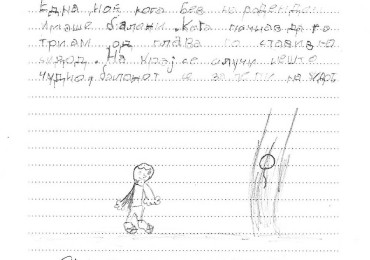 Една ноќ кога бев на роденден
имаше балони. Кога почнав да го
тријам од глава го ставив на
ѕидод. На крај се случи нешто
чудно, балонот се залепи на